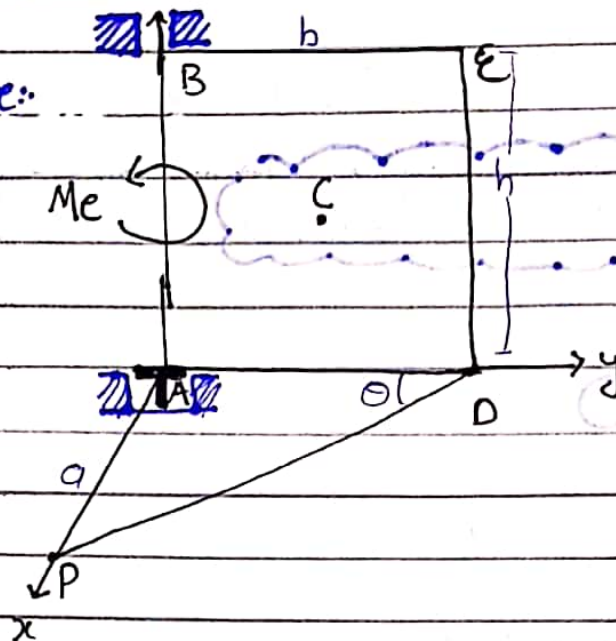 b
B
E
e:-
h
Me
C
A
y
θ
D
a
P
x